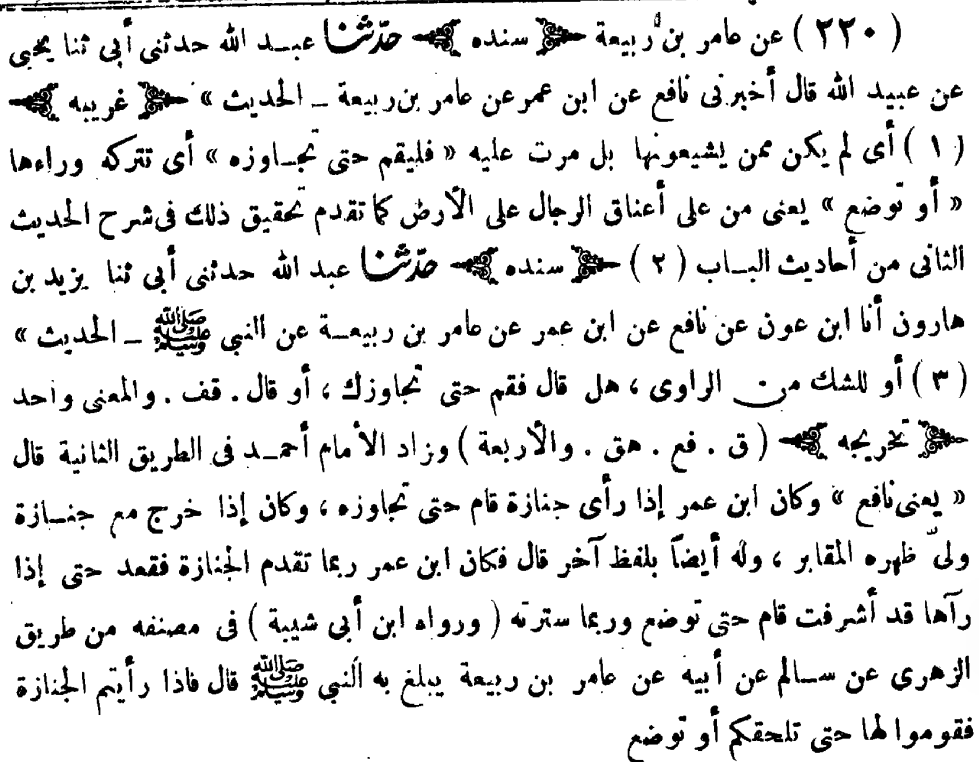 ( ٢٢٠ ) عن عامر بن ربيعة ﴿ سنده ﴾ حدثنا عبد الله حدثنى أبى ثنا يحيى
عن عبيد الله قال أخبرنى نافع عن ابن عمر عن عامر بن ربيعة ـ الحديث » ﴿ غريبه ﴾
( ١ ) أى لم يكن ممن يشيعونها بل مرت عليه « فليقم حتى تجاوزه » أى تتركه وراءها
« أو توضع » يعنى من على أعناق الرجال على الأرض كما تقدم تحقيق ذلك فى شرح الحديث
الثانى من أحاديث الباب ( ٢ ) ﴿ سنده ﴾ حدثنا عبد الله حدثنى أبى ثنا يزيد بن
هارون أنا ابن عون عن نافع عن ابن عمر عن عامر بن ربيعة عن النبى ﷺ ـ الحديث »
( ٣ ) أو للشك من الراوى ، هل قال فقم حتى تجاوزك ، أو قال . قف . والمعنى واحد
﴿ تخريجه ﴾ ( ق . فع . هق . والأربعة ) وزاد الأمام أحمد فى الطريق الثانية قال
« يعنى نافع » وكان ابن عمر إذا رأى جنازة قام حتى تجاوزه ، وكان إذا خرج مع جنازة
ولىّ ظهره المقابر ، وله أيضاً بلفظ آخر قال فكان ابن عمر ربما تقدم الجنازة فقعد حتى إذا
رآها قد أشرفت قام حتى توضع وربما سترته ( ورواه ابن أبى شيبة ) فى مصنفه من طريق
الزهرى عن سالم عن أبيه عن عامر بن ربيعة يبلغ به النبى ﷺ قال فاذا رأيتم الجنازة
فقوموا لها حتى تلحقكم أو توضع